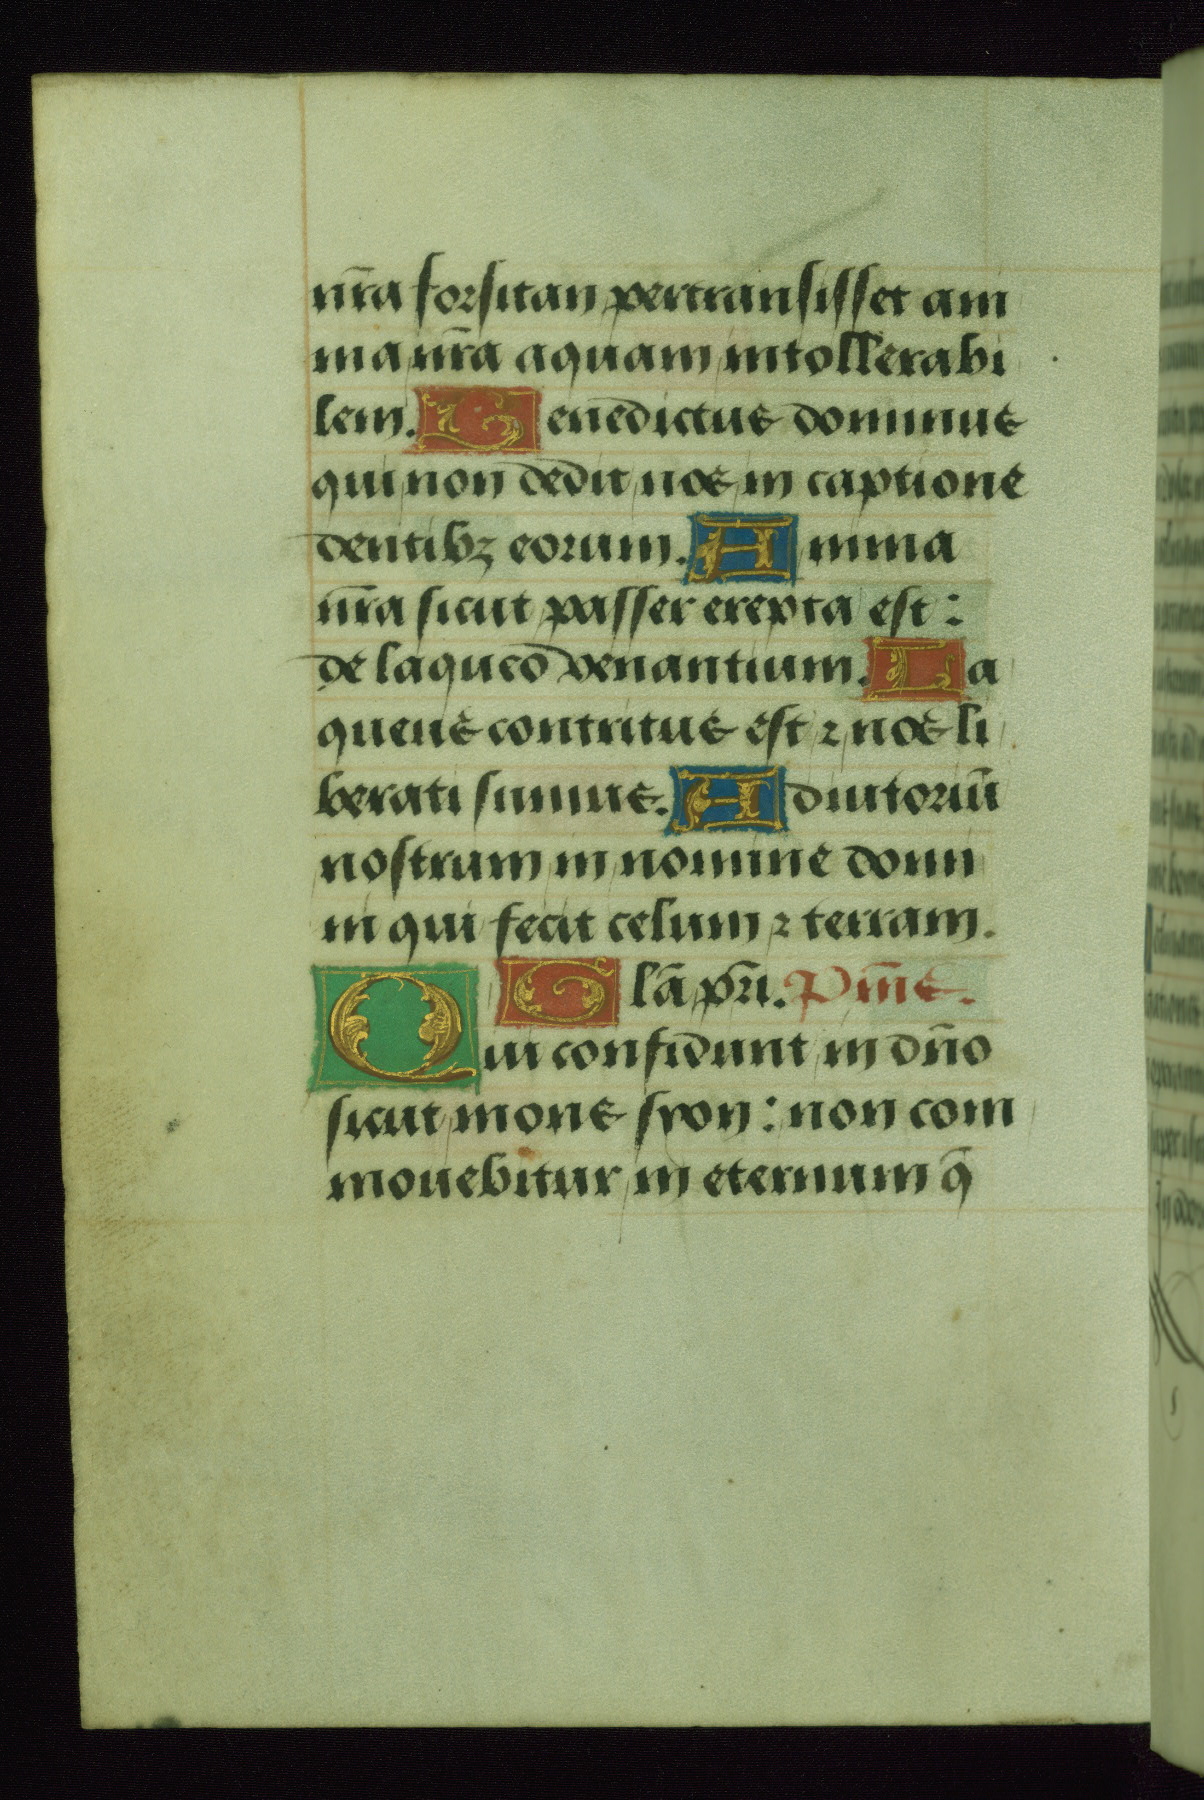 nr̄a forsitan pertransisset ani
ma nr̄a aquam intollerabi
lem. Benedictus dominus
qui non dedit nos in captione
dentibꝫ eorum. Anima
nr̄a sicut passer erepta est:
de laqueo venantium. La
queus contritus est ⁊ nos li
berati sumus. Adiutoriū
nostrum in nomine domi
ni qui fecit celum ⁊ terram.
Glā pr̄i. Ps̄m̄s.
Qui confidunt in dn̄o
sicut mons syon: non com
mouebitur in eternum q̄